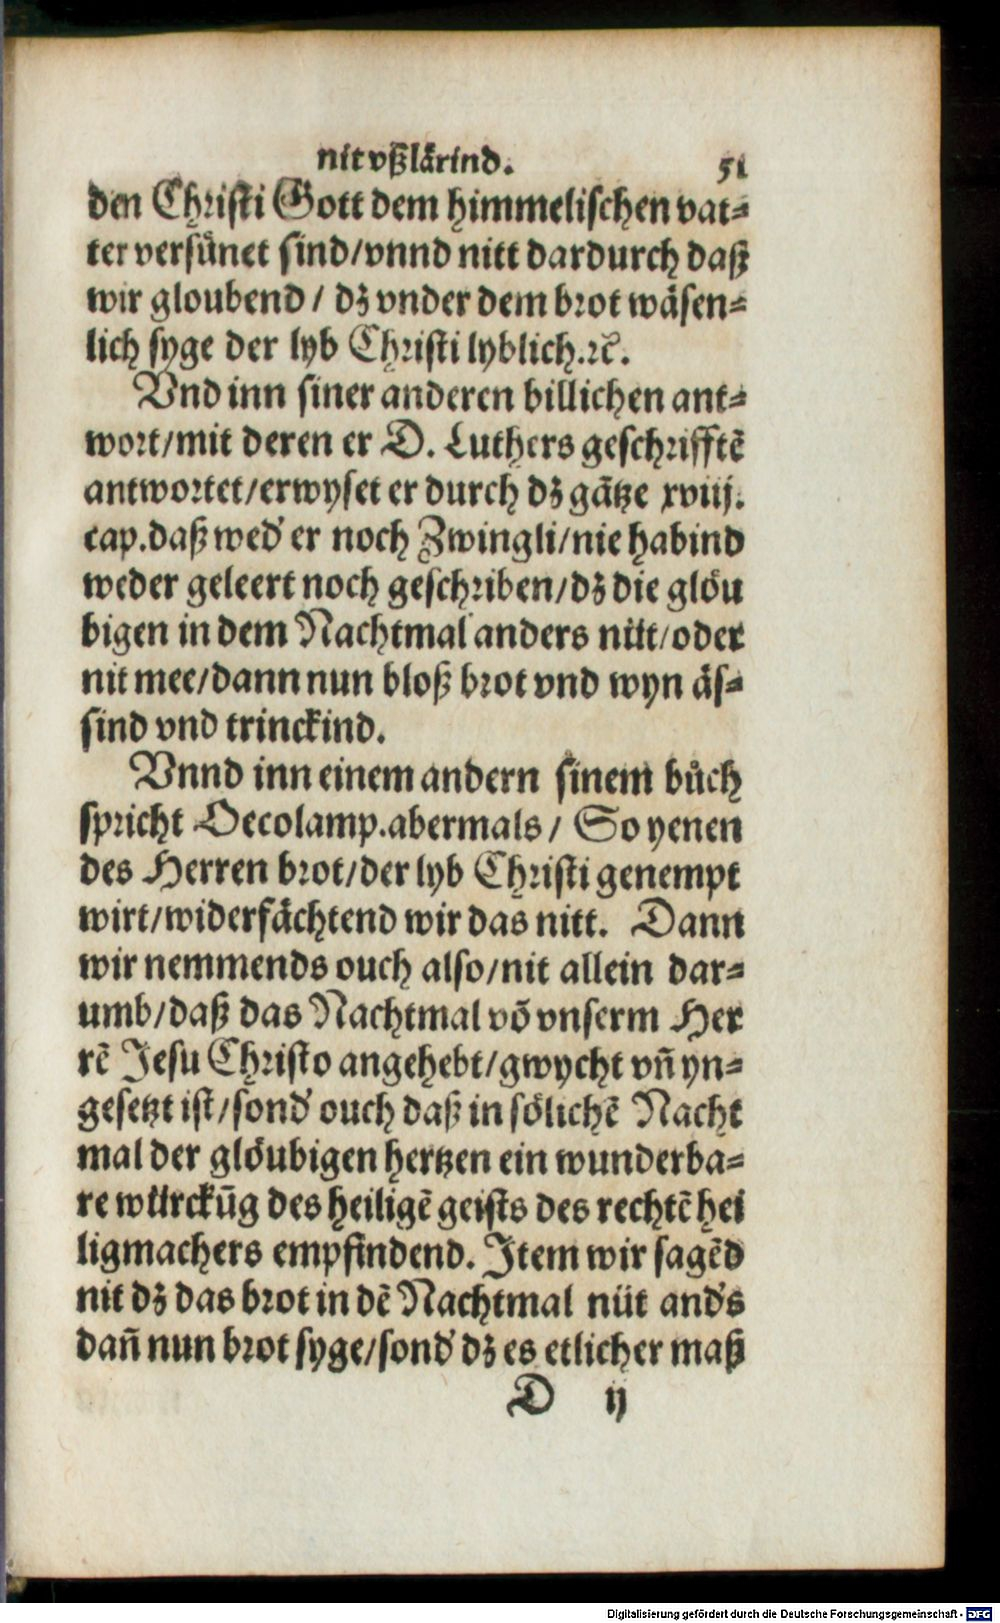 nit vßlärind. 51
den Christi Gott dem himmelischen vat⸗
ter versünet sind/vnnd nitt dardurch daß
wir gloubend / dz vnder dem brot wäsen⸗
lich syge der lyb Christi lyblich.ꝛc.
Vnd inn siner anderen billichen ant⸗
wort/mit deren er D. Luthers geschrifftē
antwortet/erwyset er durch dz gātze xviij.
cap.daß wed' er noch Zwingli/nie habind
weder geleert noch geschriben/dz die glöu
bigen in dem Nachtmal anders nüt/oder
nit mee/dann nun bloß brot vnd wyn äs⸗
sind vnd trinckind.
Vnnd inn einem andern sinem bůch
spricht Oecolamp.abermals/ So yenen
des Herren brot/der lyb Christi genempt
wirt/widerfächtend wir das nitt. Dann
wir nemmends ouch also/nit allein dar⸗
umb/daß das Nachtmal vō vnserm Her
rē Jesu Christo angehebt/gwycht vn̄ yn⸗
gesetzt ist/sond' ouch daß in sölichē Nacht
mal der glöubigen hertzen ein wunderba⸗
re würckūg des heiligē geists des rechtē hei
ligmachers empfindend. Item wir sagēd
nit dz das brot in dē Nachtmal nüt and's
dan̄ nun brot syge/sond' dz es etlicher maß
D ij
Digitalisierung gefördert durch die Deutsche Forschungsgemeinschaft - DFG